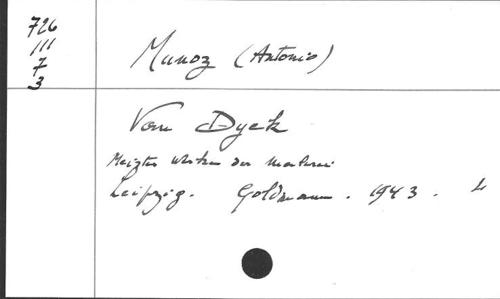 726
111
7
3
Munoz (Antonio)
Van Dyck
Meister der
Leipzig. Goldmann. 1943. L